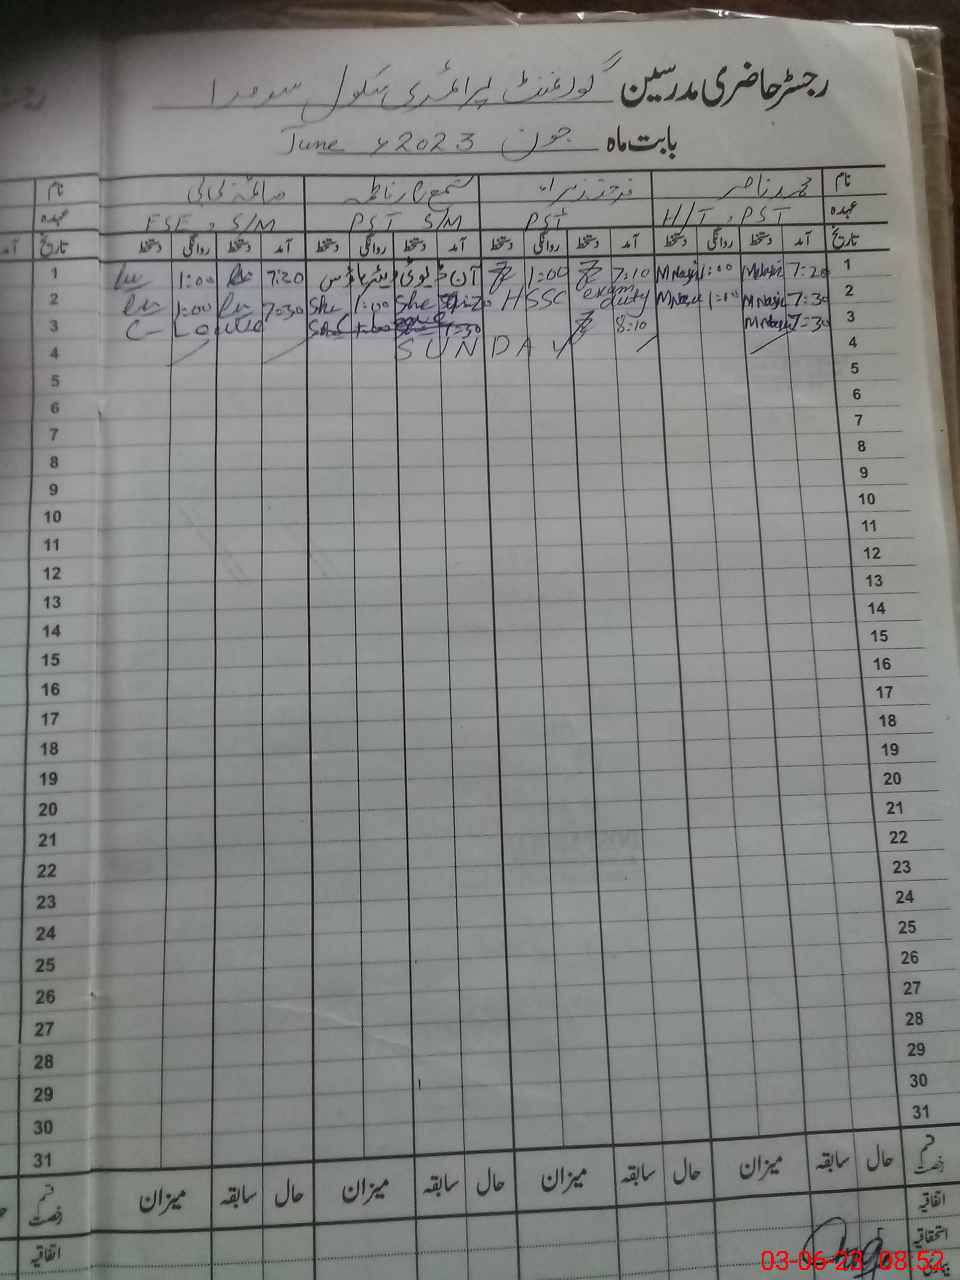 رجسٹر حاضری مدرسین گورنمنٹ پرائمری سکول
بابت ماہ جون June 2023
نام محمد ناصر
عہدہ H/T, PST PST PST S/M ESE, S/M
تاریخ آمد دستخط روانگی دستخط آمد دستخط روانگی دستخط آمد دستخط روانگی دستخط آمد دستخط روانگی دستخط تاریخ
1 7:20 M Nasir 1:00 M Nasir 7:10 1:00 آن ڈیوٹی 7:20 1:00 1
2 7:30 M Nasir M Nasir HSSC exam duty She 1:00 She 7:30 1:00 2
3 7:30 M Nasir 8:10 7:30 C-Leave 3
4 SUNDAY 4
5 5
6 6
7 7
8 8
9 9
10 10
11 11
12 12
13 13
14 14
15 15
16 16
17 17
18 18
19 19
20 20
21 21
22 22
23 23
24 24
25 25
26 26
27 27
28 28
29 29
30 30
31 31
قسم رخصت حال سابقہ میزان حال سابقہ میزان حال سابقہ میزان حال سابقہ میزان قسم رخصت
اتفاقیہ اتفاقیہ
استحقاقیہ
03-06-23 08:52